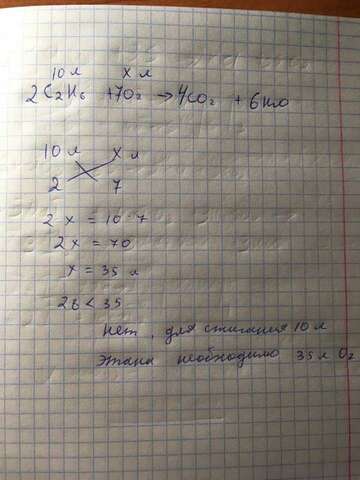 10 л x л
2C₂H₆ +7O₂ → 4CO₂ + 6H₂O
10 л x л
2 7
2x = 10·7
2x = 70
x = 35 л
26 < 35
Нет, для сжигания 10 л
этана необходимо 35 л O₂